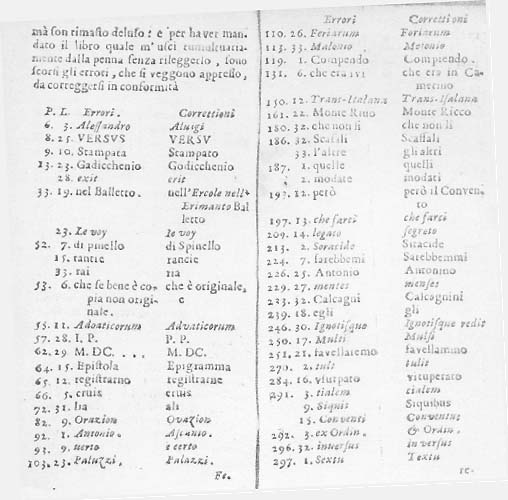 mà son rimasto deluso: e per haver man-
dato il libro quale m'uscì tumultuaria-
mente dalla penna senza rileggerlo, sono
scorsi gli errori, che si veggono appresso,
da correggersi in conformità
P. L. Errori. Correttioni
6. 3. Alessandro Aluigi
8. 25. VERSVS VERSV
9. 10. Stampata Stampato
13. 23. Gadicchenio Godicchenio
28. exit erit
33. 19. nel Balletto. nell'Ercole nell'
Erimanto Bal
letto
23. Le voy le voy
52. 7. di pinello di Spinello
15. rantie rancie
33. rai ria
53. 6. che se bene è co- che è originale,
pia non origi- e
nale.
55. 11. Adoaticorum Advaticorum
57. 28. I. P. P. P.
62. 29 M. DC. . . . M. DC.
64. 15. Epistola Epigramma
65. 12. registrarno registrarne
66. 5. cruis eruis
72. 31. ha ali
82. 9. Orazion Ovazion
92. 1. Antonio. Ascanio.
93. 9. uerto e certo
103. 23. Paluzzi. Palazzi.
Fe.
Errori Correttioni
110. 26. Feriarum Foriarum
113. 33. Malonio Molonio
119. 1. Compendo Compiendo.
131. 6. che era ivi che era in Ca-
merino
150. 12. Trans-Italana Trans-Isalana
161. 22. Monte Riuo Monte Ricco
180. 32. che non si che non li
186. 32. Scafali Scaffali
33. l'altre gli altri
187. 1. quelle quelli
2. modate inodati
193. 12. però però il Conven-
to
197. 13. che farci che farsi
209. 14. legato segreto
213. 2. Soracide Siracide
224. 7. farebbemi Sarebbemmi
226. 25. Antonio Antonino
229. 27. mentes menses
233. 32. Calcagni Calcagnini
239. 18. egli gli
246. 30. Ignotisque Ignotisque redit
250. 17. Multi Mulsi
251. 21. favellaremo favellammo
270. 2. tult tulit
284. 16. vsurpato vituperato
291. 3. tialem cialem
9. Siquis Siquibus
15. Conventi Conventus
292. 3. ex Ordin. & Ordin.
296. 32. inversus in versus
297. 1. Sextu Textu
re.